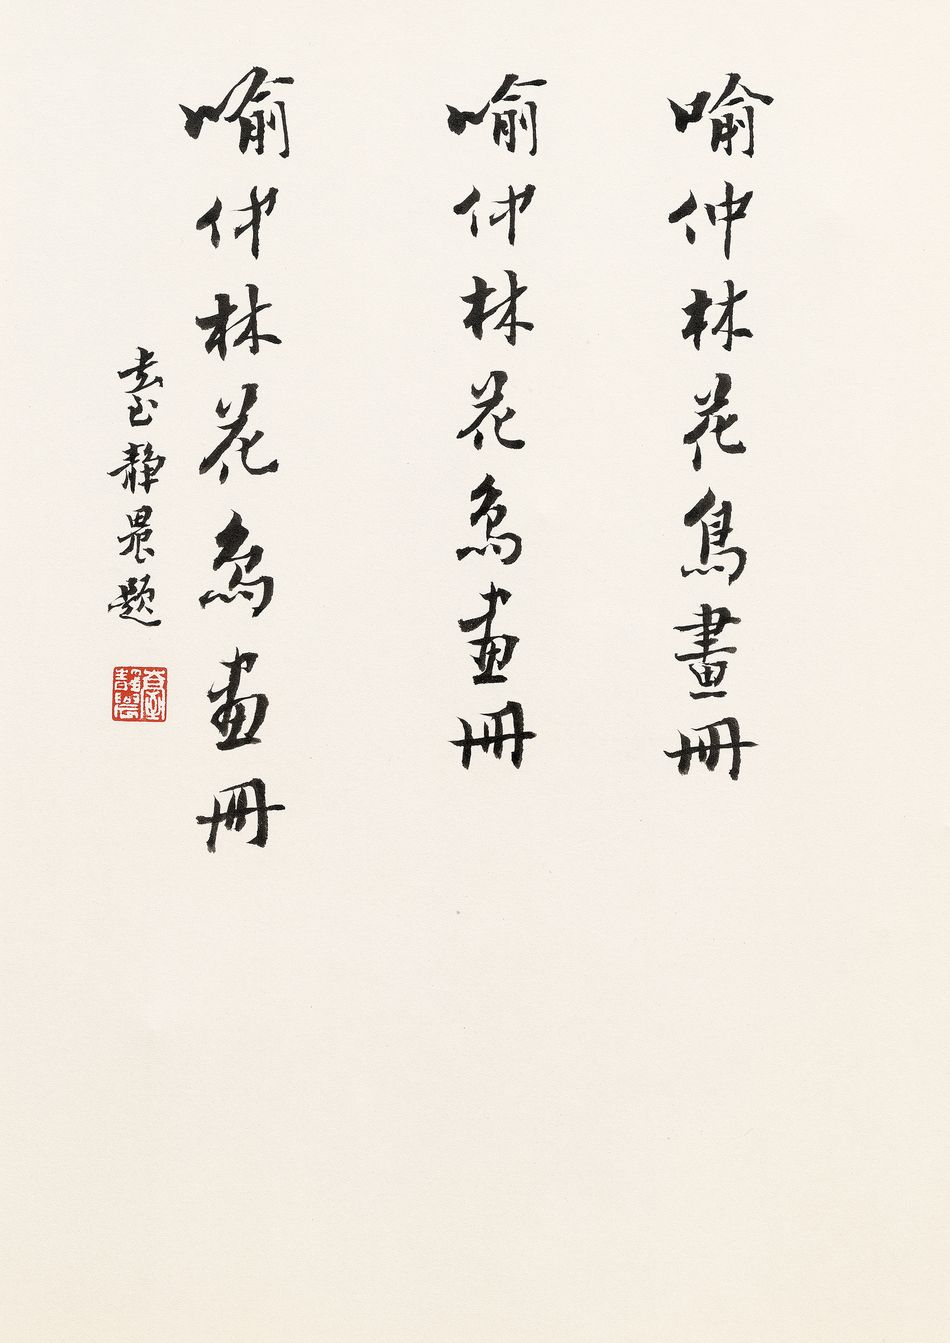 喻仲林花鳥畫冊
喻仲林花鳥畫冊
喻仲林花鳥畫冊
臺靜農題
臺靜農